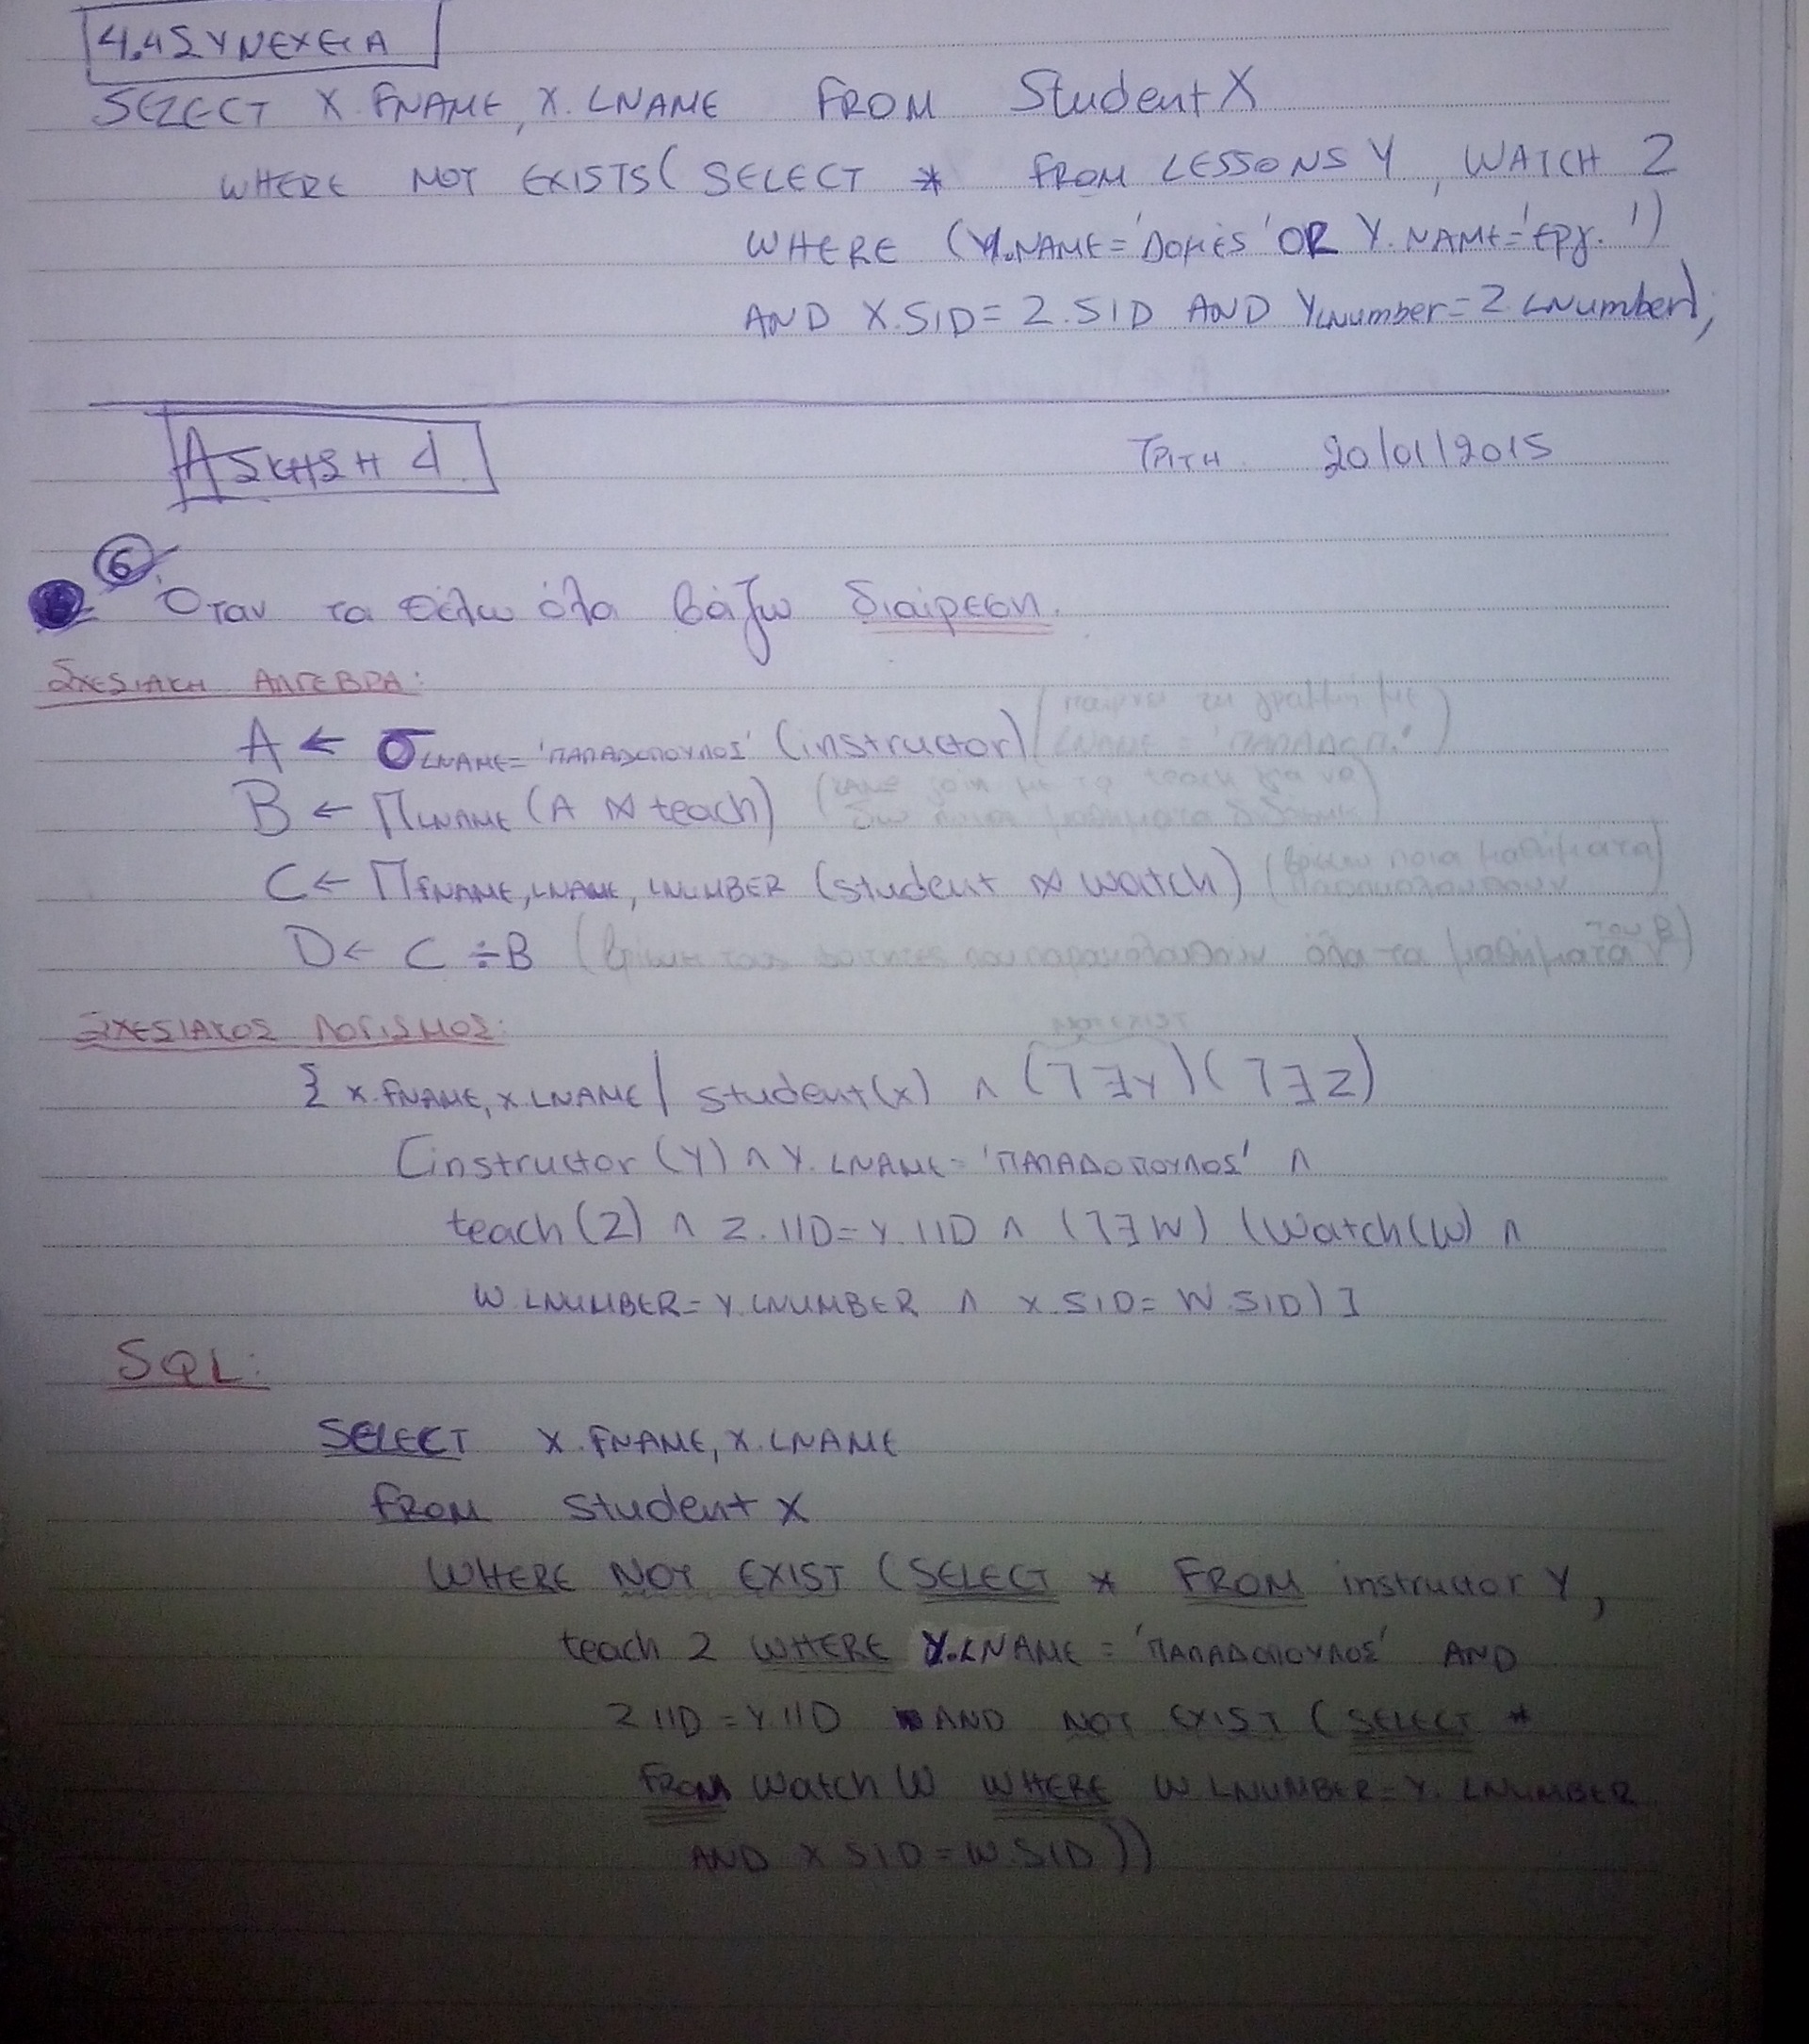 4.4 ΣΥΝΕΧΕΙΑ
SELECT X.FNAME, X.LNAME FROM Student X
WHERE NOT EXISTS( SELECT * FROM LESSONS Y, WATCH Z
WHERE (Y.NAME='Δομές' OR Y.NAME='εργ.')
AND X.SID=Z.SID AND Y.LNumber=Z.LNumber);
ΑΣΚΗΣΗ 4 ΤΡΙΤΗ 20/01/2015
⑥
Όταν τα θέλω όλα βάζω διαίρεση.
ΣΧΕΣΙΑΚΗ ΑΛΓΕΒΡΑ:
A ← σ LNAME='ΠΑΠΑΔΟΠΟΥΛΟΣ' (instructor) (παίρνω τη γραμμή με
LNAME = 'ΠΑΠΑΔΟΠ.')
B ← Π LNAME (A ⋈ teach) (κάνω join με το teach για να
δω ποια μαθήματα διδάσκει)
C ← Π FNAME, LNAME, LNUMBER (student ⋈ watch) (βρίσκω ποια μαθήματα
παρακολουθούν)
D ← C ÷ B (βρίσκω τους φοιτητές που παρακολουθούν όλα τα μαθήματα του B)
ΣΧΕΣΙΑΚΟΣ ΛΟΓΙΣΜΟΣ:
NOT EXIST
{ x.FNAME, x.LNAME | student(x) ∧ (¬∃Y)(¬∃Z)
[instructor (Y) ∧ Y.LNAME='ΠΑΠΑΔΟΠΟΥΛΟΣ' ∧
teach(Z) ∧ Z.IID=Y.IID ∧ (¬∃W) (Watch(W) ∧
W.LNUMBER=Y.LNUMBER ∧ X.SID=W.SID)]
SQL:
SELECT X.FNAME, X.LNAME
FROM student X
WHERE NOT EXIST (SELECT * FROM instructor Y,
teach Z WHERE Y.LNAME = 'ΠΑΠΑΔΟΠΟΥΛΟΣ' AND
Z.IID=Y.IID AND NOT EXIST (SELECT *
FROM Watch W WHERE W.LNUMBER=Y.LNUMBER
AND X.SID=W.SID))